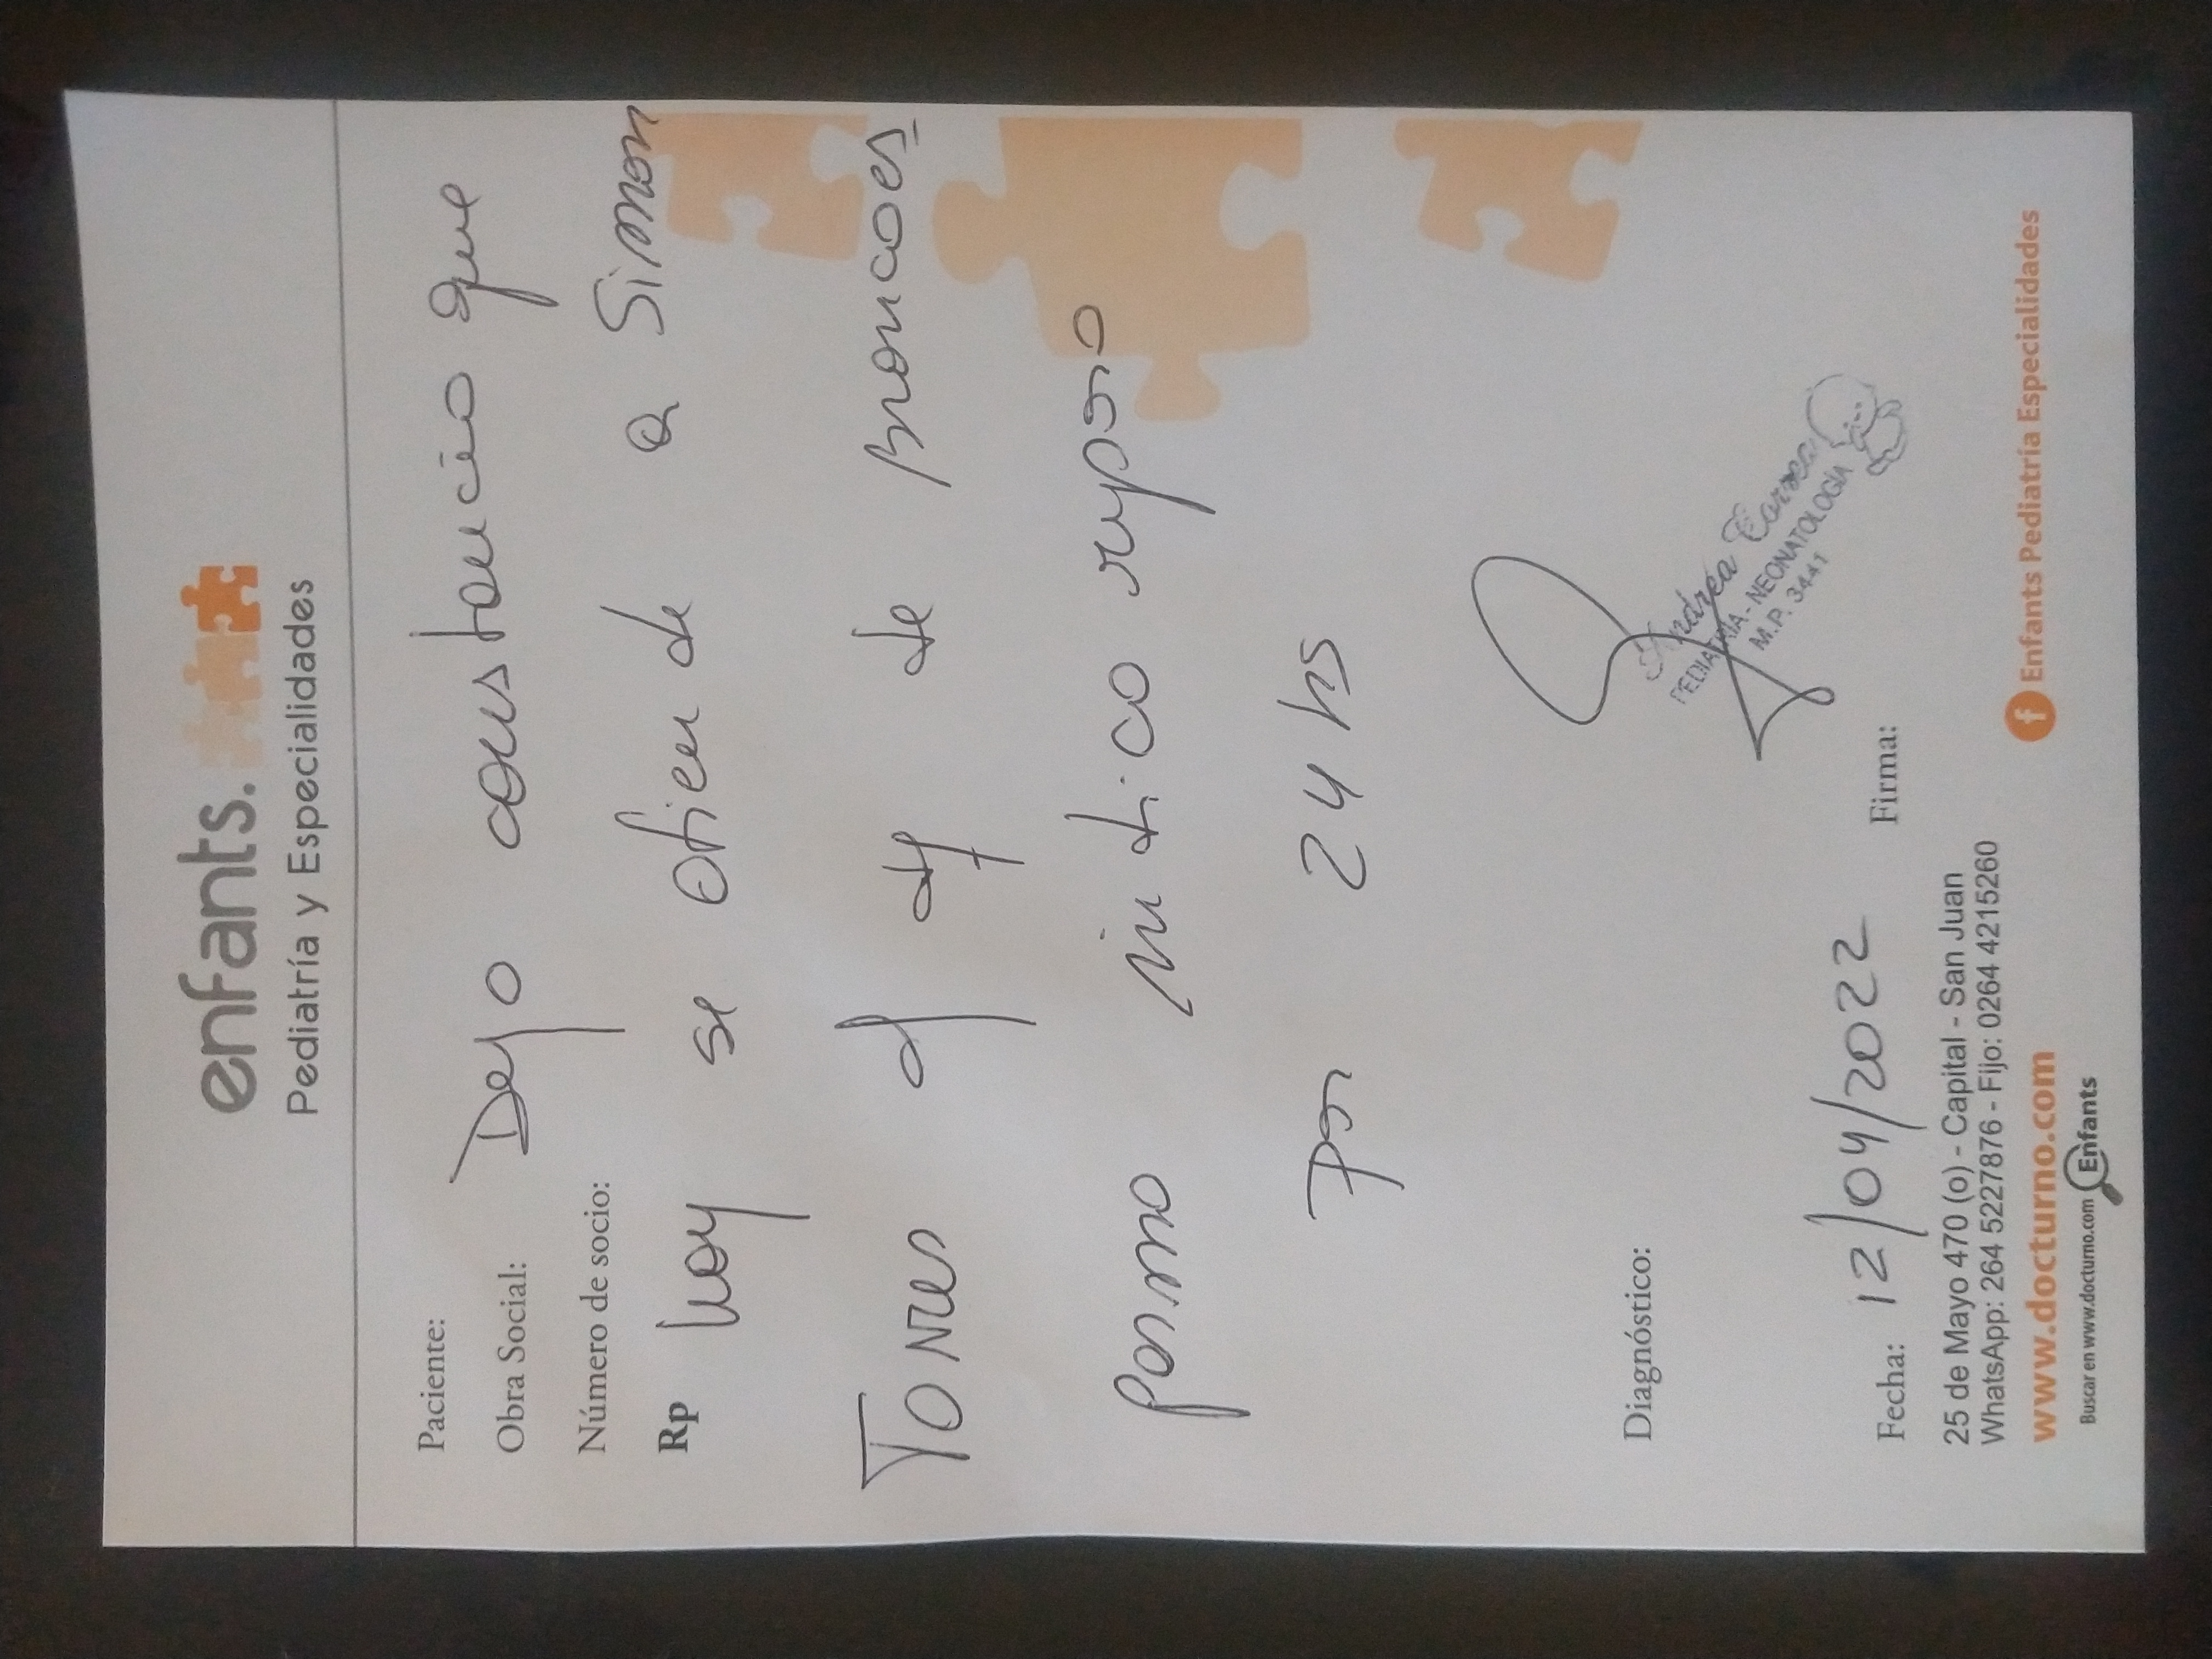 enfants.
Pediatría y Especialidades
Paciente:
Dejo constancia que
Obra Social:
Número de socio:
Rp hoy se atiende a Simon
Torres df de bronco es
pasmo indico reposo
por 24 hs
Andrea Correa
PEDIATRÍA - NEONATOLOGÍA
M.P. 3441
Diagnóstico:
Fecha: 12/04/2022 Firma:
25 de Mayo 470 (o) - Capital - San Juan
WhatsApp: 264 5227876 - Fijo: 0264 4215260
www.docturno.com
f Enfants Pediatría Especialidades
Buscar en www.docturno.com Enfants